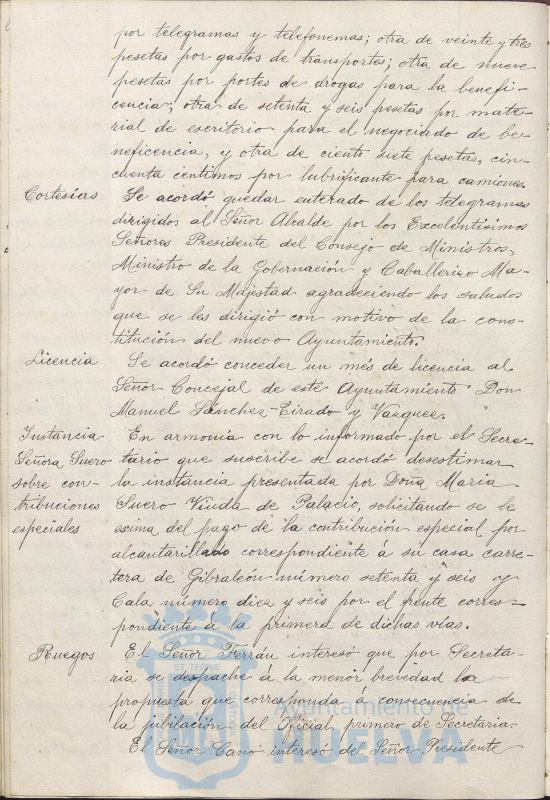 por telegramas y telefonemas; otra de veinte y tres
pesetas por gastos de transportes; otra de nueve
pesetas por portes de drogas para la benefi-
cencia; otra de setenta y seis pesetas por mate-
rial de escritorio para el negociado de be-
neficencia, y otra de ciento siete pesetas, cin-
cuenta centimos por lubrificante para camiones.
Cortesías Se acordó quedar enterado de los telegramas
dirigidos al Señor Alcalde por los Excelentísimos
Señores Presidente del Consejo de Ministros,
Ministro de la Gobernación y Caballerizo Ma-
yor de Su Majestad agradeciendo los saludos
que se les dirigió con motivo de la cons-
titución del nuevo Ayuntamiento.
Licencia Se acordó conceder un més de licencia al
Señor Concejal de este Ayuntamiento Don
Manuel Sánchez-Tirado y Vazquez.
Instancia En armonía con lo informado por el Secre-
Señora Suero tario que suscribe se acordó desestimar
sobre con- la instancia presentada por Doña Maria
tribuciones Suero Viuda de Palacio, solicitando se le
especiales exima del pago de la contribución especial por
alcantarillado correspondiente a su casa carre-
tera de Gibraleón número setenta y seis y
Cala número diez y seis por el frente corres-
pondiente á la primera de dichas vías.
Ruegos El Señor Terrán interesó que por Secreta-
ria se despache á la menor brevedad la
propuesta que corresponda a consecuencia de
la jubilación del Oficial primero de Secretaria.
El Señor Cano interesó del Señor Presidente
Ayuntamiento de
HUELVA